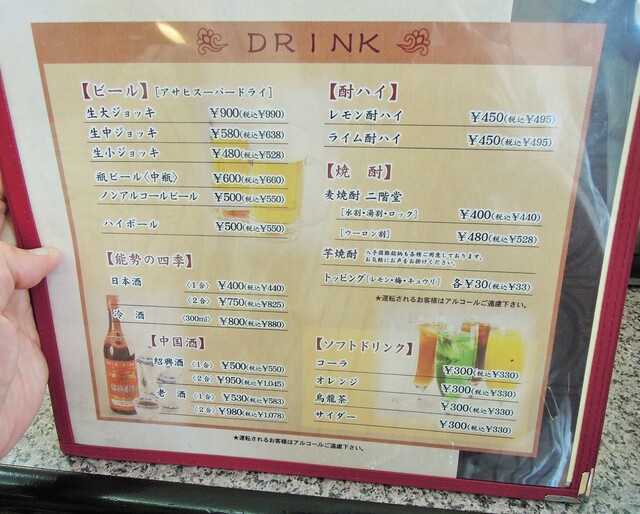 DRINK
【ビール】[アサヒスーパードライ]
生大ジョッキ ¥900(税込¥990)
生中ジョッキ ¥580(税込¥638)
生小ジョッキ ¥480(税込¥528)
瓶ビール〈中瓶〉 ¥600(税込¥660)
ノンアルコールビール ¥500(税込¥550)
ハイボール ¥500(税込¥550)
【能勢の四季】
日本酒 〈1合〉 ¥400(税込¥440)
〈2合〉 ¥750(税込¥825)
冷酒 〈300ml〉 ¥800(税込¥880)
【中国酒】
紹興酒 〈1合〉 ¥500(税込¥550)
〈2合〉 ¥950(税込¥1,045)
老酒 〈1合〉 ¥530(税込¥583)
〈2合〉 ¥980(税込¥1,078)
【酎ハイ】
レモン酎ハイ ¥450(税込¥495)
ライム酎ハイ ¥450(税込¥495)
【焼酎】
麦焼酎 二階堂
[水割・湯割・ロック] ¥400(税込¥440)
[ウーロン割] ¥480(税込¥528)
芋焼酎 入手困難銘柄も各種ご用意しております。
お気軽にお声をお掛けください。
トッピング[レモン・梅・キュウリ] 各¥30(税込¥33)
★運転されるお客様はアルコールご遠慮下さい。
【ソフトドリンク】
コーラ ¥300(税込¥330)
オレンジ ¥300(税込¥330)
烏龍茶 ¥300(税込¥330)
サイダー ¥300(税込¥330)
★運転されるお客様はアルコールご遠慮下さい。